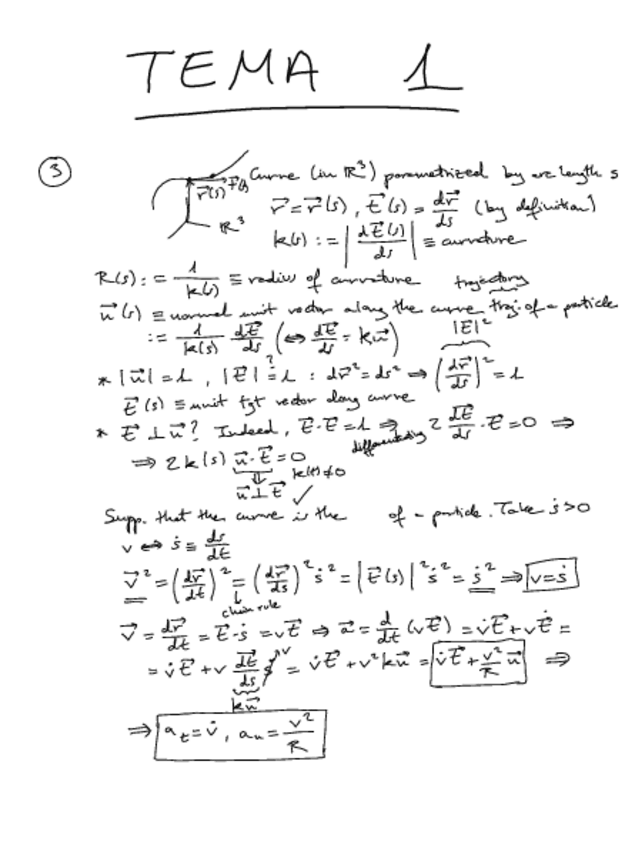 TEMA 1
③
r⃗(s) t⃗(s) Curve (in ℝ³) parametrized by arc length s
ℝ³ r⃗=r⃗(s), t⃗(s) = dr⃗/ds (by definition)
k(s) := |dt⃗(s)/ds| ≡ curvature
R(s) := 1/k(s) ≡ radius of curvature trajectory
u⃗(s) ≡ normal unit vector along the curve traj. of a particle
:= 1/k(s) dt⃗/ds (⇔ dt⃗/ds = ku⃗) |t⃗|²
* |u⃗|=1, |t⃗| ≟ 1 : dr⃗²=ds² ⇒ (dr⃗/ds)² = 1
t⃗(s) ≡ unit tgt vector along curve
* t⃗ ⊥ u⃗? Indeed, t⃗·t⃗=1 ⇒ differentiating 2 dt⃗/ds · t⃗ = 0 ⇒
⇒ 2k(s) u⃗·t⃗ = 0
⇓ k(t)≠0
u⃗⊥t⃗ ✓
Supp. that the curve is the of a particle. Take ṡ>0
v ⇔ ṡ ≡ ds/dt
v⃗² = (dr⃗/dt)² = (dr⃗/ds)² ṡ² = |t⃗(s)|² ṡ² = ṡ² ⇒ v=ṡ
chain rule
v⃗ = dr⃗/dt = t⃗·ṡ = vt⃗ ⇒ a⃗ = d/dt (vt⃗) = v̇t⃗ + vt⃗̇ =
= v̇t⃗ + v dt⃗/ds ṡ v = v̇t⃗ + v²ku⃗ = v̇t⃗ + v²/R u⃗ ⇒
ku⃗
⇒ a_t = v̇, a_n = v²/R